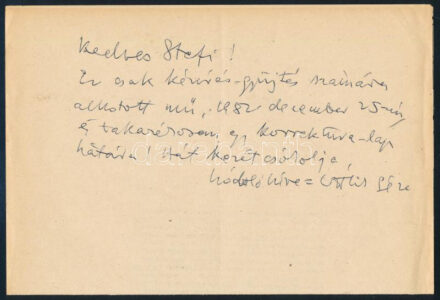 Kedves Stefi!
Ez csak kézírás-gyűjtés számára
alkotott mű, 1982 december 25-én,
és takarékosan egy korrektúra-lap
hátára! Hát kezét csókolja,
hódoló híve = Ottlik Géza